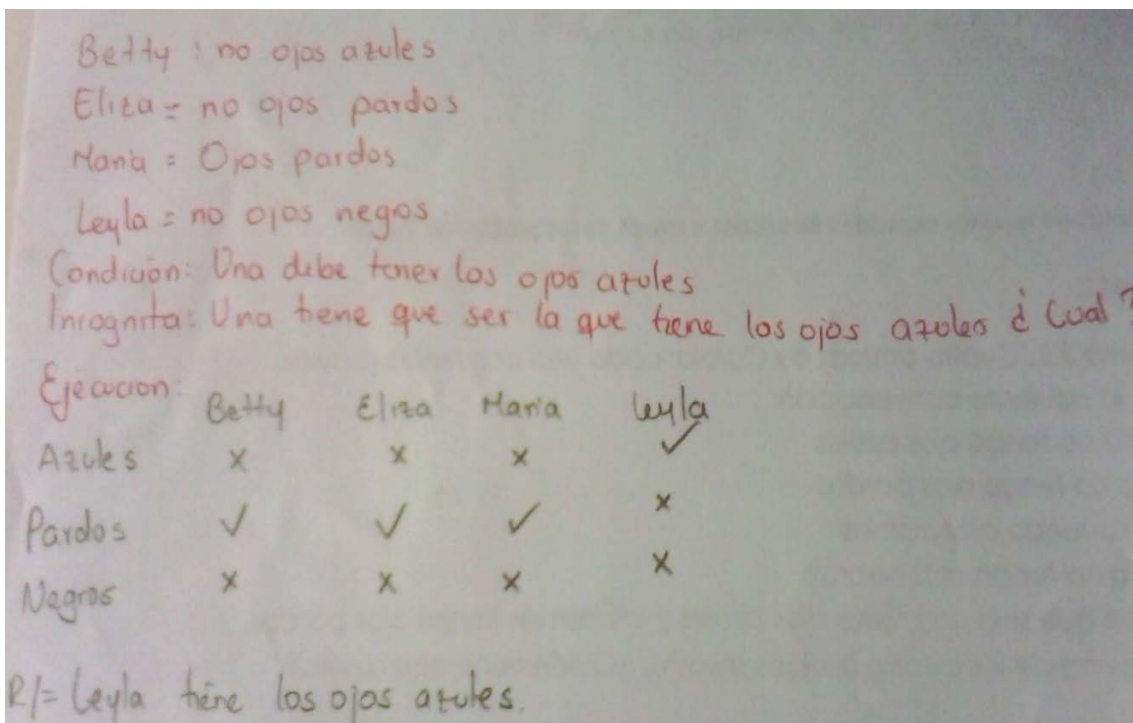 Betty : no ojos azules
Eliza = no ojos pardos
Maria = Ojos pardos
Leyla = no ojos negros
Condición: Una debe tener los ojos azules
Incognita: Una tiene que ser la que tiene los ojos azules ¿ Cual ?
Ejecucion:
Betty Eliza Maria Leyla
Azules x x x ✓
Pardos ✓ ✓ ✓ x
Negros x x x x
R/= Leyla tiene los ojos azules.